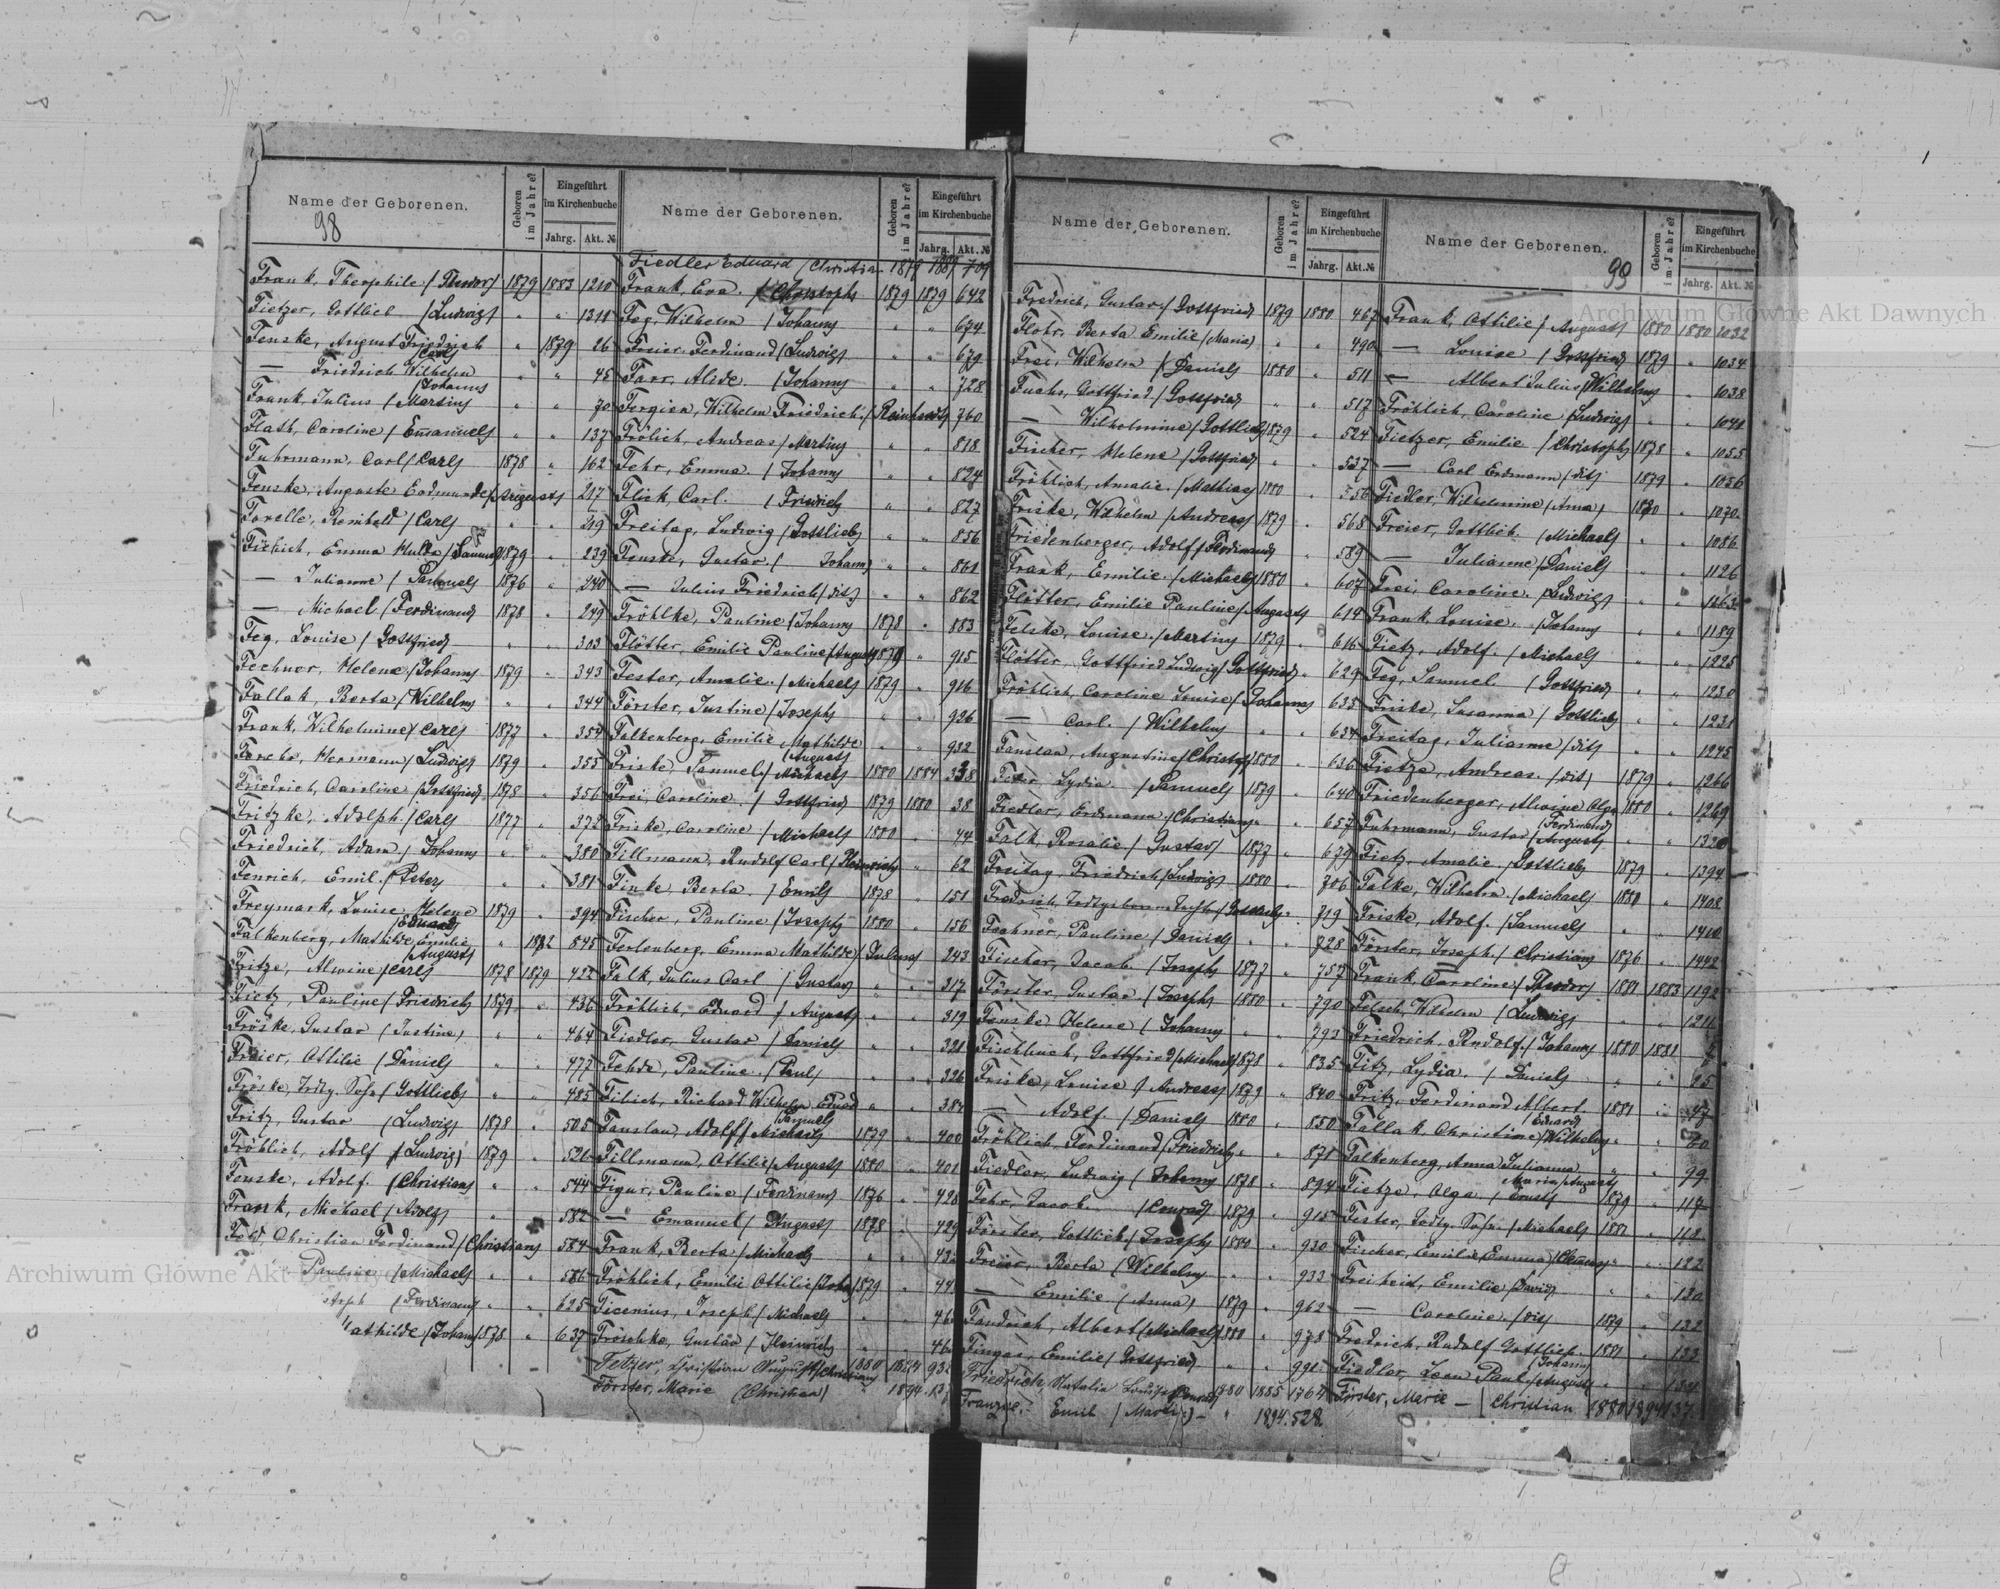 Name der Geborenen.
Geboren im Jahre?
Eingeführt im Kirchenbuche
Jahrg. Akt. №
98
Frank, Theophile / Theodor / 1879 1883 1210
Fietzer, Gottlieb / Ludwigs / " " 1311
Fenske, August Friedrich " 1879 26
/ Carls /
— Friedrich Wilhelm " " 45
/ Johanns
Frank, Julius / Martins " " 70
Flath, Caroline / Emanuels " " 137
Fuhrmann, Carl / Carls 1878 " 162
Fenske, Auguste / Augusts " 217
Forelle, Reinhold / Carls " " 219
Emma Hulda / Samuels 1879 " 239
— Julianne / Samuels 1876 " 240
— Michael / Ferdinands 1878 " 249
Feg, Louise / Gottfrieds " " 303
Fechner, Helene / Johanns 1879 " 343
Fallak, Berta / Wilhelms " " 344
Frank, Wilhelmine / Carls 1877 " 354
Hermann / Ludwigs 1879 " 355
Friedrich, Caroline / Gottfrieds 1878 " 356
Fritzke, Adolph / Carls 1877 " 372
Friedrich, Adam / Johanns " " 380
Fenrich, Emil / Peters " " 381
Freymark, Louise Helene 1879 " 394
Eduards
Falkenberg, Mathilde Emilie " 1882 845
/ Augusts
Fritze, Alwine / Carls 1878 1879 422
Fietz, Pauline / Friedrichs 1879 " 436
Fröske, Gustav / Justine / " " 464
Freier, Ottilie / Daniels " " 477
Fröske, Todtg. Sohn / Gottliebs " " 485
Fritz, Gustav / Ludwigs 1878 " 505
Fröhlich, Adolf / Ludwig / 1879 " 526
Fenske, Adolf. / Christians " " 544
Frank, Michael / Adolfs " " 582
Feld, Christian Ferdinand / Christians " 584
Pauline / Michaels " " 586
/ Ferdinands " " 625
athilde / Johanns 1878 " 637
Name der Geborenen.
Geboren im Jahre?
Eingeführt im Kirchenbuche
Jahrg. Akt. №
Fiedler Eduard / Christian 1879 1887 709
Frank, Eva. / Christophs 1879 1879 642
Feg, Wilhelm / Johanns " " 674
Freier Ferdinand / Ludwigs " " 679
Farr, Alide. / Johanns " " 728
Fergien, Wilhelm Friedrich. / Reinholds 760
Frölich, Andreas / Martins " " 818
Fehr, Emma / Johanns " " 824
Flick, Carl. / Friedrichs " " 827
Freitag, Ludwig / Gottliebs " " 856
Fenske, Gustav. / Johanns " " 861
— Julius Friedrich / dits " " 862
Fröhlke, Pauline / Johanns 1878 " 883
Flötter, Emilie Pauline / Augusts 1879 " 915
Fester, Amalie. / Michaels 1879 " 916
Förster, Justine / Josephs " " 926
Falkenberg, Emilie Mathilde " " 932
/ Augusts
Friske, Samuel / Michaels 1880 1884 338
Frei, Caroline. / Gottfrieds 1879 1880 38
Friske, Caroline / Michaels 1880 " 44
Fillmann, Rudolf Carl / Heinrichs " 62
Finke, Berta. / Emils 1878 " 151
Fischer, Pauline / Josephs 1880 " 156
Ferlenberg, Emma Mathilde / Julius 243
Falk, Julius Carl / Gustavs " " 317
Fröhlich, Eduard / Augusts " " 319
Fiedler, Gustav / Daniels " " 321
Fehde, Pauline. / Pauls " " 326
Richard Wilhelm Eduard " " 384
/ Samuels
Fanslau, Adolf / Michaels 1879 " 400
Fillmann, Ottilie / Augusts 1880 " 401
Figur, Pauline / Ferdinands 1876 " 428
— Emanuel / Augusts 1878 " 429
Frank, Berta / Michaels " " 43
Fröhlich, Emilie Ottilie / Joh. 1879 " 44
Ficenius, Joseph / Michaels " " 46
Fröschke, Gustav / Heinrichs " " 46
Fetzer, Christian August / Christians 1880 1884 932
Förster, Marie (Christian) " 1894 137
Name der Geborenen.
Geboren im Jahre?
Eingeführt im Kirchenbuche
Jahrg. Akt. №
Fredrich, Gustav / Gottfrieds 1879 1880 467
Flohr, Berta Emilie / Marie / " " 490
Frei, Wilhelm / Daniels 1880 " 511
Fuchs, Gottfried / Gottfrieds " " 517
— Wilhelmine / Gottliebs 1879 " 524
Fischer, Helene / Gottfrieds " " 527
Fröhlich, Amalie. / Mathias 1880 " 556
Friske, Wilhelm / Andreas 1879 " 568
Friedenberger, Adolf / Ferdinands " 589
Frank, Emilie. / Michaels 1880 " 607
Flötter, Emilie Pauline / Augusts 614
Felske, Louise. / Martins 1879 " 616
Flötter, Gottfried Ludwig / Gottfrieds " 629
Fröhlich, Caroline Louise / Johanns 633
— Carl. / Wilhelms " " 634
Fanslau, Augustine / Christophs 1880 " 636
Lydia. / Samuels 1879 " 640
Fiedler, Erdmann / Christians " " 657
Falk, Rosalie / Gustavs 1877 " 679
Freitag, Friedrich / Ludwigs 1880 " 706
Fredrich, " 719
Fechner, Pauline / Daniels " " 728
Fischer, Jacob. / Josephs 1877 " 757
Förster, Gustav / Josephs 1880 " 790
Fenske Helene / Johanns " " 793
Fischbuch, Gottfried / Michaels 1878 " 835
Friske, Louise / Andreas 1879 " 840
— Adolf / Daniels 1880 " 850
Fröhlich, Ferdinand / Friedrichs " " 871
Fiedler, Ludwig / Johanns 1878 " 894
Fehr, Jacob. / Conrads 1879 " 915
Förster, Gottlieb / Josephs 1880 " 930
Freier, Berta / Wilhelms " " 933
— Emilie (Anna) 1879 " 962
Fandrich, Albert / Michaels 1880 " 978
Finger, Emilie / Gottfrieds " " 991
Friedrich, Natalie Louise / Conrads 1880 1885 1764
Emil / " 1894. 528.
Name der Geborenen.
Geboren im Jahre?
Eingeführt im Kirchenbuche
Jahrg. Akt. №
99
Frank, Ottilie / Augusts 1880 1880 1032
— Louise / Gottfrieds 1879 " 1034
— Albert Julius / Wilhelms " 1038
Fröhlich, Caroline / Ludwigs " " 1041
Fietzer, Emilie / Christophs 1878 " 1055
— Carl Erdmann / dits 1879 " 1056
Fiedler, Wilhelmine / Anna / 1880 " 1070
Freier, Gottlieb. / Michaels " " 1086
— Julianne / Daniels " " 1126
Frei, Caroline. / Ludwigs " " 1163
Frank, Louise. / Johanns " " 1189
Fietz, Adolf. / Michaels " " 1225
Feg, Samuel / Gottfrieds " " 1230
Friske, Susanna / Gottliebs " " 1231
Freitag, Julianne / dits " " 1245
Fietze, Andreas / dits 1879 " 1266
Friedenberger, Alwine Olga 1880 " 1269
/ Ferdinands
Fuhrmann, Gustav / Augusts " " 1320
Fietz, Amalie. / Gottliebs 1879 " 1394
Falke, Wilhelm. / Michaels 1880 " 1408
Friske, Adolf. / Samuels " " 1410
Förster, Joseph. / Christians 1876 " 1442
Frank, Caroline / Theodors 1881 1883 1192
Felsch, Wilhelm / Ludwigs " " 1211
Friedrich, Rudolf / Johanns 1880 1881 5
Fitz, Lydia. / Daniels " " 25
Fritz, Ferdinand Albert. 1881 " 47
/ Eduards
Fallak, Christine / Wilhelms " " 60
Falkenberg, Anna Julianna " " 99
Maria / Augusts
Fietze, Olga. / Ernsts 1879 " 117
Fester, Todtg. Sohn. / Michaels 1881 " 118
Fischer, Emilie Emma / " " 122
Freiheit, Emilie / Davids " " 130
— Caroline. / dits 1879 " 132
Fredrich, Rudolf Gottlieb. 1881 " 133
/ Johanns
Fiedler, Leon Paul / Augusts " " 134
Förster, Marie — / Christian 1880 1894 137
Archiwum Główne Akt Dawnych
Archiwum Główne Akt Dawnych